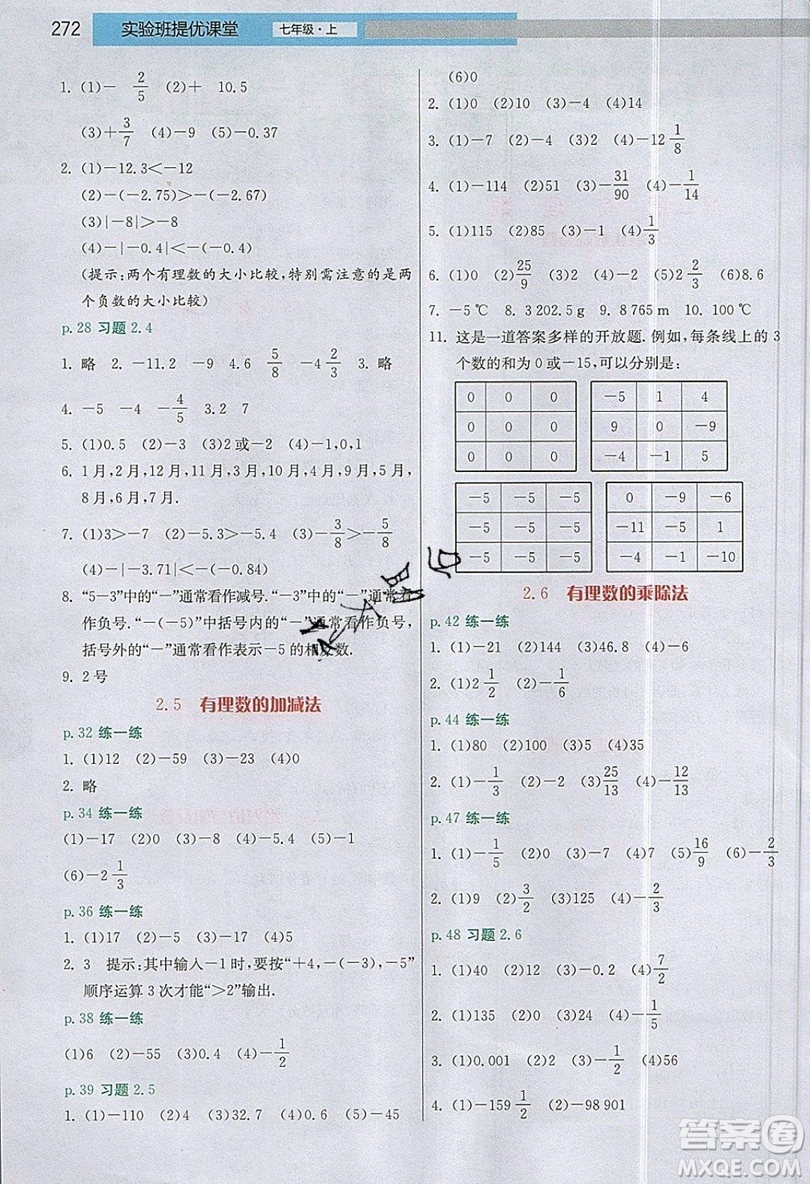 272 实验班提优课堂 七年级·上
1. (1)-2/5 (2)+ 10.5
(3)+3/7 (4)-9 (5)-0.37
2. (1)-12.3<-12
(2)-(-2.75)>-(-2.67)
(3)|-8|>-8
(4)-|-0.4|<-(-0.4)
(提示:两个有理数的大小比较,特别需注意的是两
个负数的大小比较)
p.28 习题2.4
1. 略 2. -11.2 -9 4.75 4 5/8 -4 4/3 3. 略
4. -5 -4/5 3.2 7
5. (1)0.5 (2)-3 (3)2或-2 (4)-1,0,1
6. 1月,2月,12月,3月,11月,4月,10月,5月,9月,
8月,6月,7月.
7. (1)3>-7 (2)-5>-5.4 (3)-3/8>-5/8
(4)-|-3.71|<-(-0.84)
8. “5-3”中的“-”通常看作减号.“-3”中的“-”通常看
作负号.“-(-5)”中括号内的“-”通常看作负号,
括号外的“-”通常看作表示-5的相反数.
9. 2号
2.5 有理数的加减法
p.32 练一练
1. (1)12 (2)-59 (3)-23 (4)0
2. 略
p.34 练一练
(1)-17 (2)0 (3)-8 (4)-5.4 (5)-1
(6)-2 1/3
p.36 练一练
1. (1)17 (2)-5 (3)-17 (4)5
2. 3 提示:其中输入-1时,要按“+4,-(-3),-5”
顺序运算3次才能“>2”输出.
p.38 练一练
(1)6 (2)-55 (3)0.4 (4)-1/2
p.39 习题2.5
1. (1)12 (2)4 (3)32.7 (4)-12 (5)-45
(6)0
2. (1)0 (2)10 (3)-4 (4)14
3. (1)-7 (2)-4 (3)2 (4)-12 1/8
4. (1)-114 (2)51 (3)-31/90 (4)-1/14
5. (1)115 (2)85 (3)-1 (4)-1/3
6. (1)0 (2)25/9 (3)-2 (4)2 2/3 (5)0 (6)8.1
7. -5℃ 8. 3 202.5 g 9. 8 765 m 10. 100℃
11. 这是一道答案多样的开放题.例如,每条线上的3
个数的和为0或-15,可以分别是:
0 0 0 -5 1 4
0 0 0 9 0 -9
0 0 0 -4 -1 5
-5 -5 -5 0 -9 -6
-5 -5 -5 -11 -5 1
-5 -5 -5 -4 -1 -10
2.6 有理数的乘除法
p.42 练一练
1. (1)-21 (2)144 (3)46.8 (4)-90
2. (1)2 1/2 (2)-1/6
p.44 练一练
1. (1)80 (2)100 (3)5 (4)35
2. (1)-1/3 (2)-3 (3)25/13 (4)-12/13
p.47 练一练
1. (1)-1/5 (2)0 (3)-2 (4)27 (5)16/9 (6)-2/3
2. (1)9 (2)3/2 (3)125 (4)-2/3
p.48 习题2.6
1. (1)12 (2)12 (3)-0.2 (4)7/2
2. (1)135 (2)0 (3)24 (4)-1/5
3. (1)0.001 (2)-12 (3)-1/2 (4)16
4. (1)-159 1/2 (2)-98 901
答案圈
MXQE.COM